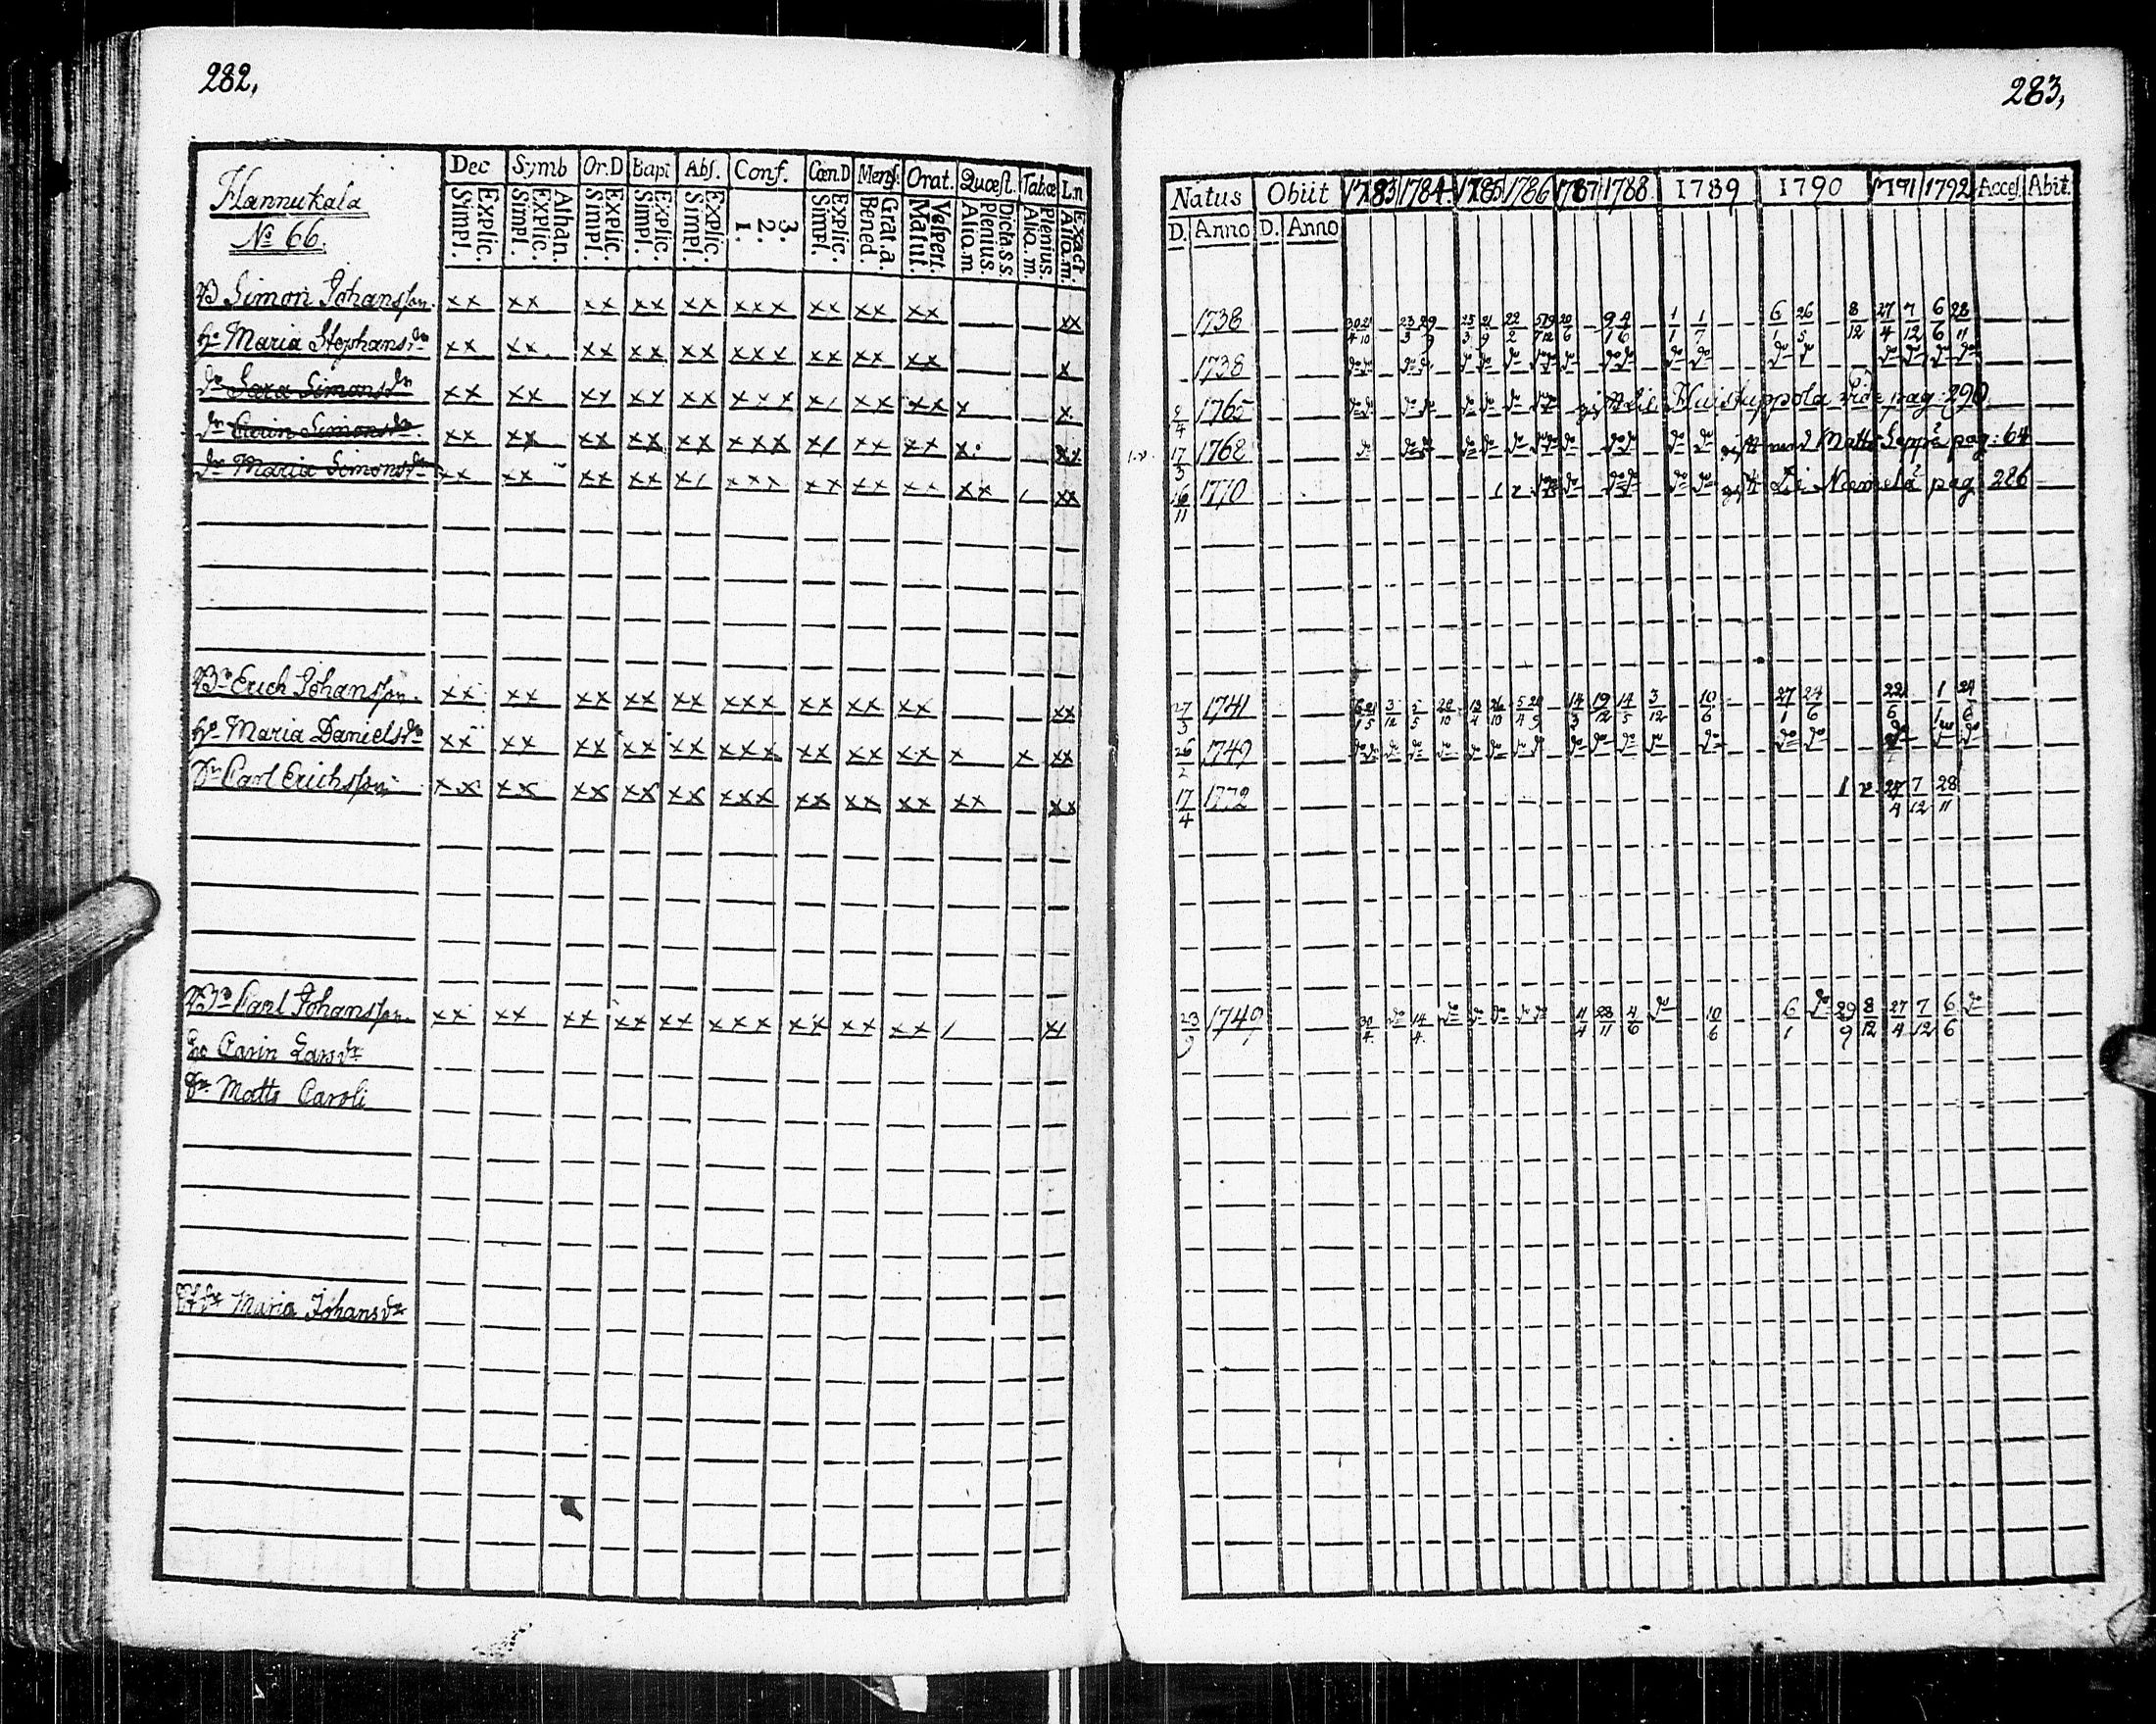 282,
Hannukala
No 66.
Dec Symb Or.D Bapt Abs. Conf. Cœn.D Mens. Orat. Quæst. Tabœ L.n
Explic. Simpl. Athan. Explic. Simpl. Explic. Simpl. Explic. Simpl. Explic. Simpl. 3. 2. 1. Explic. Simpl. Grat.a. Bened. Vespert. Matut. Dicta.s.s. Plenius. Alio.m Plenius. Alia.m. Exact. Alia.m.
B Simon Johansson. xx xx xx xx xx xxx xx xx xx xx
hu Maria Stephansdr xx xx xx xx xx xxx xx xx xx x
dr Sara Simonsdr xx xx xx xx xx xxx x/ xx xx x x
dr Carin Simonsdr xx xx xx xx xx xxx x/ xx xx x xx
dr Maria Simonsdr xx xx xx xx x/ xxx xx xx xx xx / xx
Br Erich Johansson. xx xx xx xx xx xxx xx xx xx xx
hu Maria Danielsdr xx xx xx xx xx xxx xx xx xx x x xx
Sn Carl Erichsson xx xx xx xx xx xxx xx xx xx xx xx
Br Carl Johansson. xx xx xx xx xx xxx xx xx xx / x/
hu Carin Larsdr
Sn Matts Caroli
Maria Johansdr
283,
Natus Obiit 1783 1784 1785 1786 1787 1788 1789 1790 1791 1792 Acces. Abit.
D. Anno D. Anno
1738 30/4 21/10 23/3 29/9 25/3 21/9 22/2 20/6 9/1 4/6 1/1 1/7 6/1 26/5 8/12 27/4 7/12 6/6 28/11
1738
2/4 1765 Huistuppola vide pag: 290
17/3 1768 Matts Seppä pag: 64
16/11 1770 Niemelä pag 286
27/3 1741 3/12 5/5 28/10 13/4 26/10 5/4 14/3 19/12 14/5 3/12 10/6 27/1 24/6 22/6 1/1 24/6
26/2 1749
17/4 1772 1 r 27/4 7/12 28/11
23/9 1749 30/4 14/4 4/4 28/11 4/6 10/6 6/1 29/9 8/12 27/4 7/12 6/6